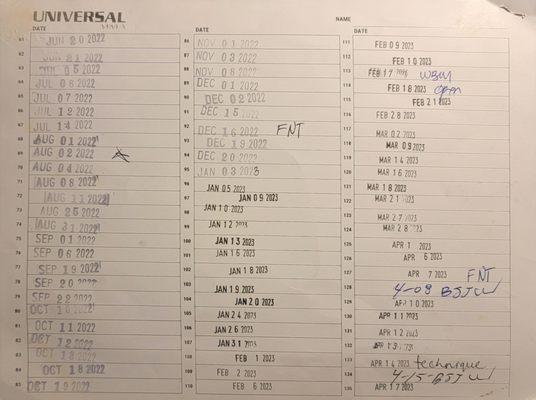 UNIVERSAL
MMA
NAME
DATE
61 JUN 20 2022
62 JUN 21 2022
63 JUL 05 2022
64 JUL 06 2022
65 JUL 07 2022
66 JUL 12 2022
67 JUL 14 2022
68 AUG 01 2022
69 AUG 02 2022
70 AUG 04 2022
71 AUG 08 2022
72 AUG 11 2022
73 AUG 25 2022
74 AUG 31 2022
75 SEP 01 2022
76 SEP 06 2022
77 SEP 19 2022
78 SEP 20 2022
79 SEP 22 2022
80 OCT 10 2022
81 OCT 11 2022
82 OCT 12 2022
83 OCT 2022
84 OCT 18 2022
85 OCT 19 2022
DATE
86 NOV 01 2022
87 NOV 03 2022
88 NOV 08 2022
89 DEC 01 2022
90 DEC 02 2022
91 DEC 15 2022
92 DEC 16 2022 FNT
93 DEC 19 2022
94 DEC 20 2022
95 JAN 03 2023
96 JAN 05 2023
97 JAN 09 2023
98 JAN 10 2023
99 JAN 12 2023
100 JAN 13 2023
101 JAN 16 2023
102 JAN 18 2023
103 JAN 19 2023
104 JAN 20 2023
105 JAN 24 2023
106 JAN 26 2023
107 JAN 31 2023
108 FEB 1 2023
109 FEB 2 2023
110 FEB 6 2023
DATE
111 FEB 09 2023
112 FEB 10 2023
113 FEB 17 2023
114 FEB 18 2023 open
115 FEB 21 2023
116 FEB 28 2023
117 MAR 02 2023
118 MAR 09 2023
119 MAR 14 2023
120 MAR 16 2023
121 MAR 18 2023
122 MAR 21 2023
123 MAR 27 2023
124 MAR 28 2023
125 APR 1 2023
126 APR 6 2023
127 APR 7 2023 FNT
128 4-08 BJJ W/
129 APR 10 2023
130 APR 11 2023
131 APR 12 2023
132 13 2023
133 APR 14 2023 technique
134 4-15-BJJ W/
135 APR 17 2023